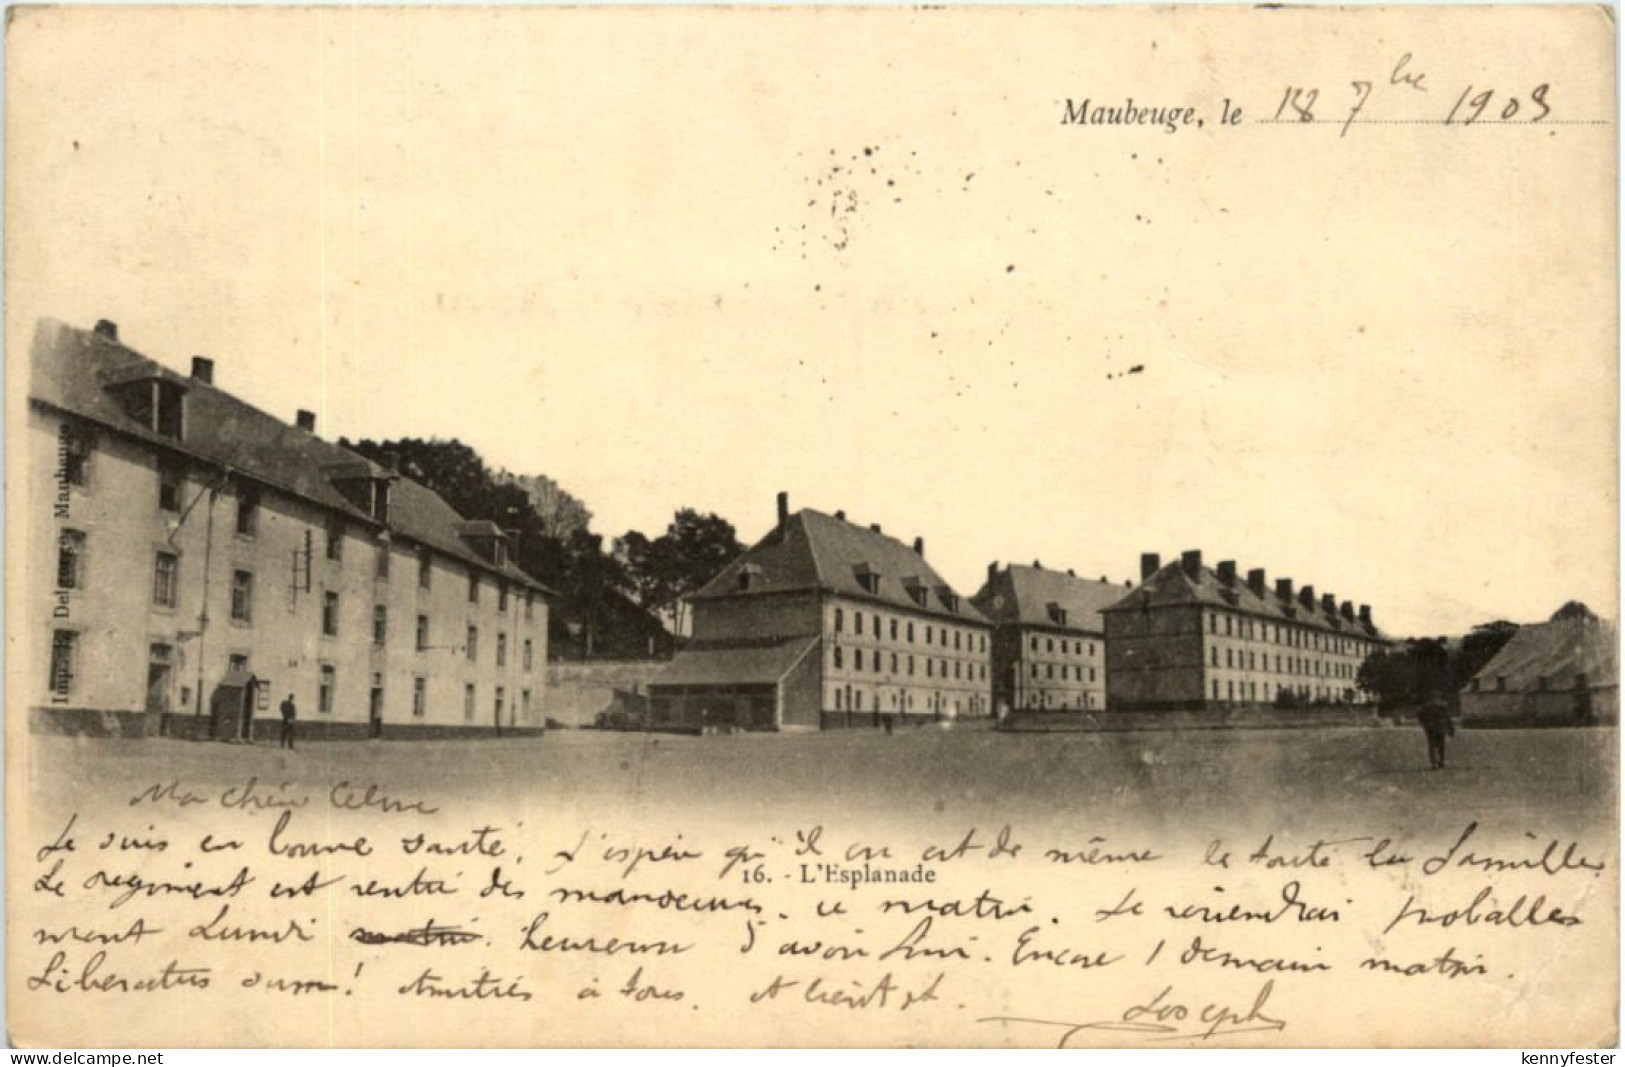 Maubeuge, le 18 7bre 1903.
Imp. Delgusta Maubeuge
Ma chère Celine
Je suis en bonne santé. J'espère qu'il en est de même de toute la famille
16. - L'Esplanade
Le régiment est rentré des manoeuvres ce matin. Je reviendrai probable
ment Lundi matin. heureux d'avoir fini. Encore 1 demain matin.
Liberatus sum! Amitiés à tous. A bientôt. Joseph
delcampe.net
kennyfester